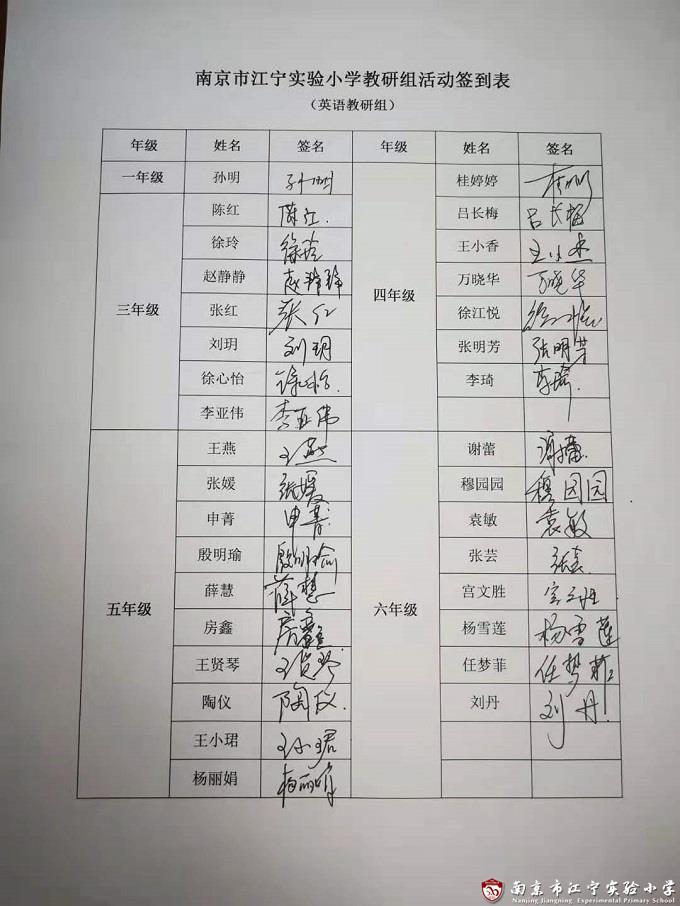 南京市江宁实验小学教研组活动签到表
（英语教研组）
年级 姓名 签名 年级 姓名 签名
一年级 孙明 孙明 四年级 桂婷婷
三年级 陈红 陈红 吕长梅 吕长梅
徐玲 徐玲 王小香 王小香
赵静静 赵静静 万晓华 万晓华
张红 张红 徐江悦 徐江悦
刘玥 刘玥 张明芳 张明芳
徐心怡 徐心怡 李琦 李琦
李亚伟 李亚伟
五年级 王燕 王燕 六年级 谢蕾 谢蕾
张媛 张媛 穆园园 穆园园
申菁 申菁 袁敏 袁敏
殷明瑜 殷明瑜 张芸 张芸
薛慧 薛慧 宫文胜 宫文胜
房鑫 房鑫 杨雪莲 杨雪莲
王贤琴 王贤琴 任梦菲 任梦菲
陶仪 陶仪 刘丹 刘丹
王小珺 王小珺
杨丽娟 杨丽娟
南京市江宁实验小学
Nanjing Jiangning Experimental Primary School